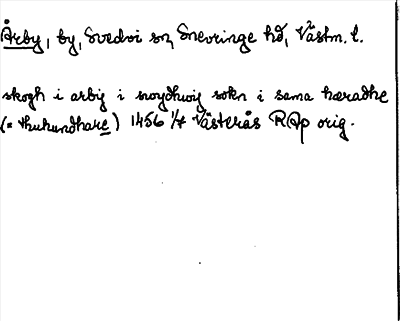 Årby, by, Svedvi sn, Snevringe hd, Västm. l.
skogh i arbij i swydhwij sokn i sama hæradhe
(= thuhundhare) 1456 1/7 Västerås RAp orig.